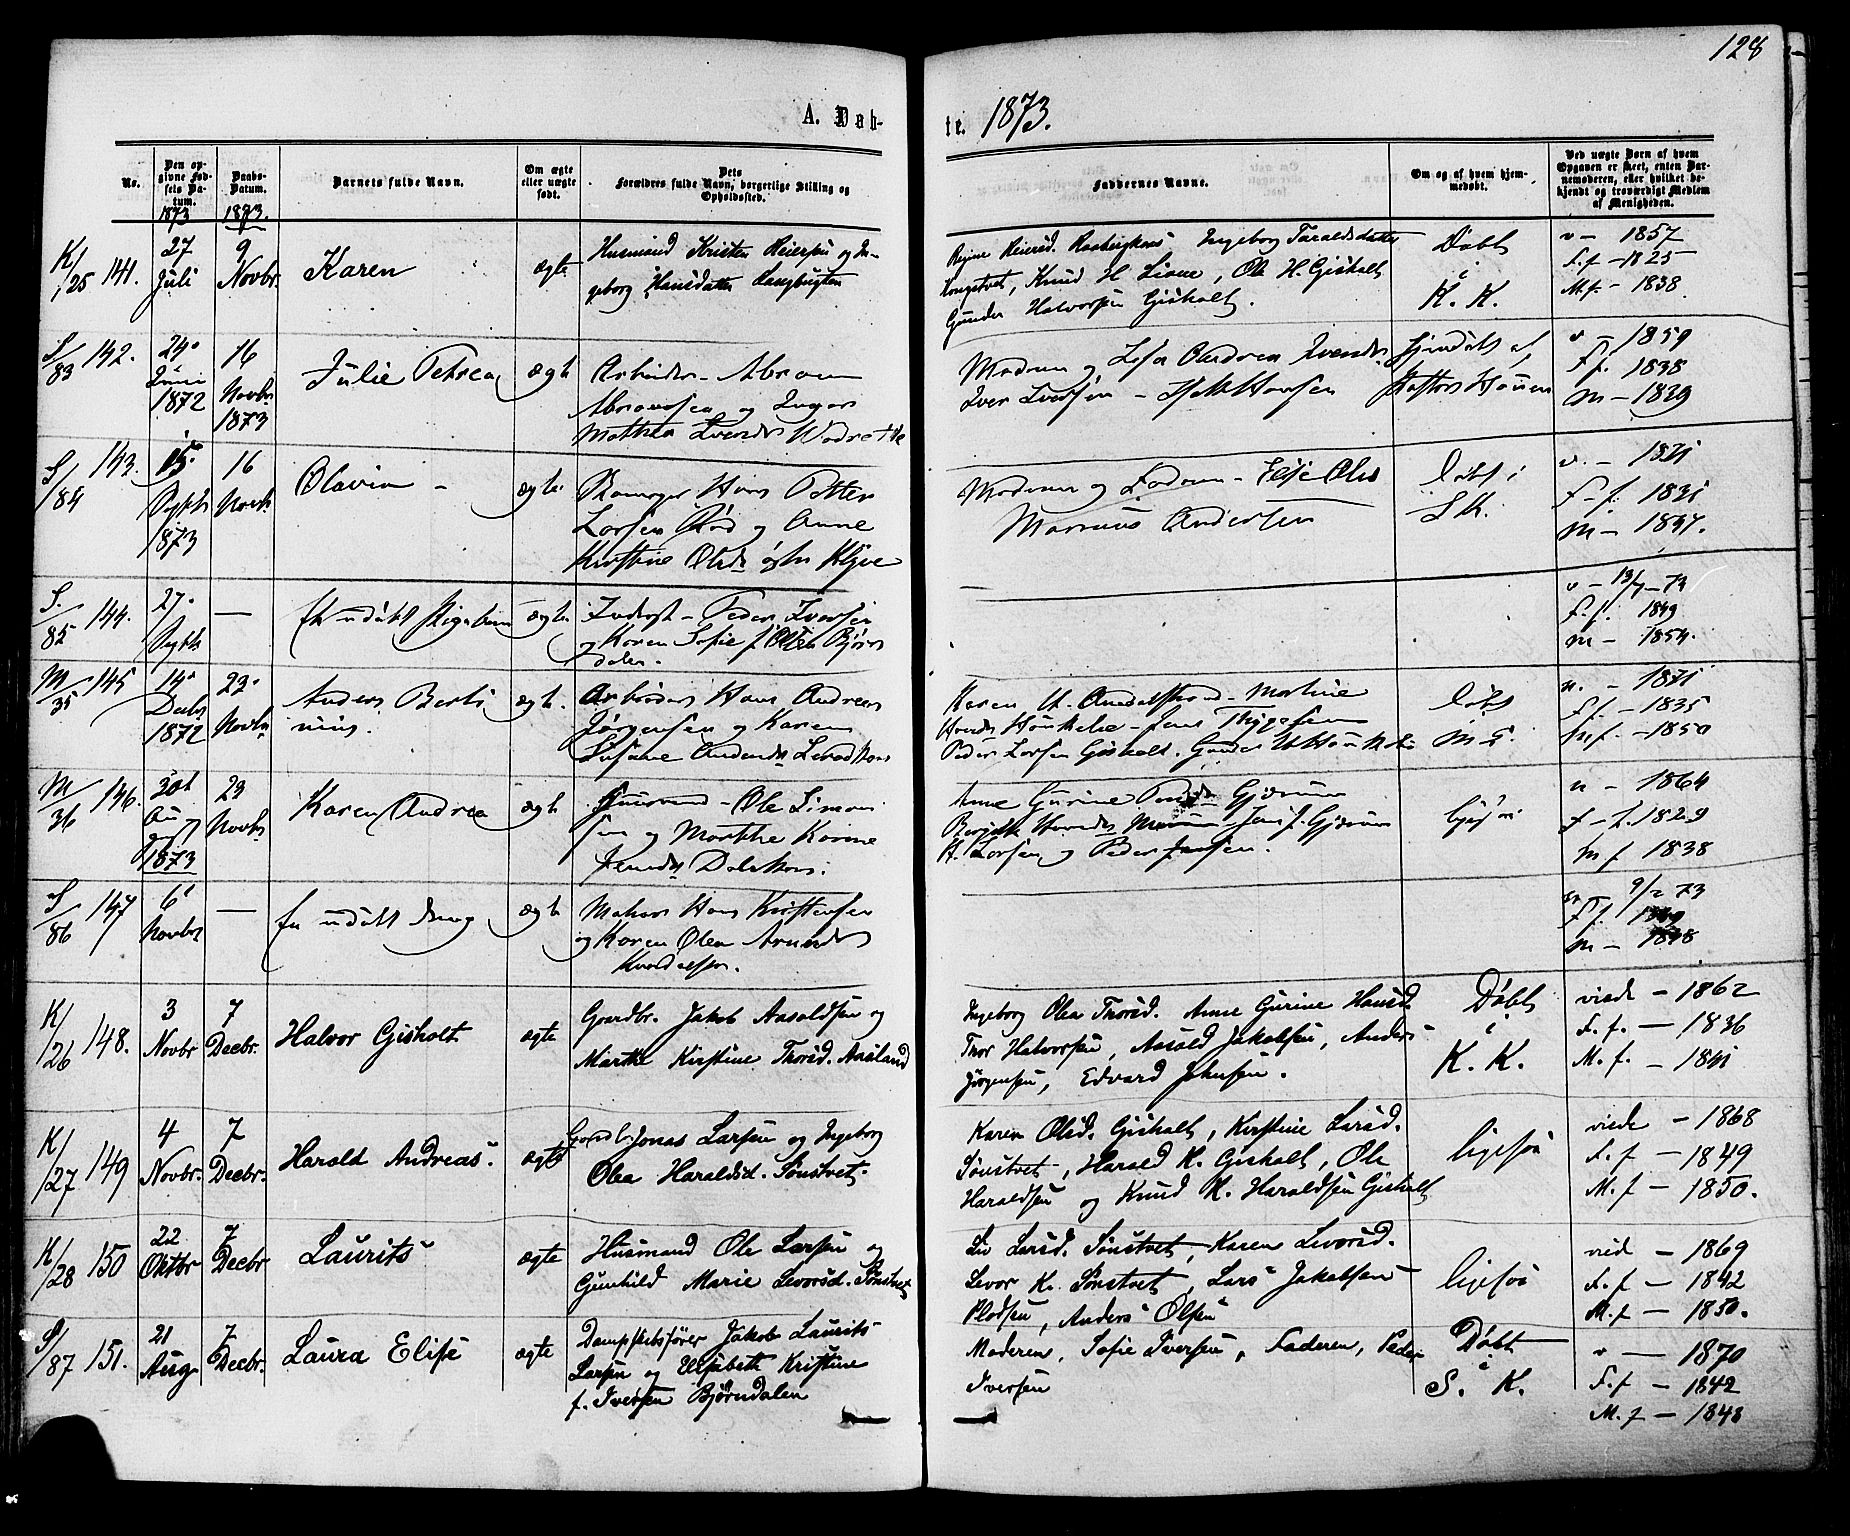 128
A. Døb-
te. 1873.
No.
Den op-
givne Fød-
sels Da-
tum.
1873
Daabs-
Datum.
1873.
Barnets fulde Navn.
Om ægte
eller uægte
født.
Dets
Forældres fulde Navn, borgerlige Stilling og
Opholdssted.
Faddernes Navne.
Om og af hvem hjem-
medøbt.
Ved uægte Børn af hvem
Opgaven er skeet, enten Bar-
nemoderen, eller hvilket be-
kjendt og troværdigt Medlem
af Menigheden.
K/25 141.
27
Juli
9
Novbr.
Karen
ægte
Husmand Kristen Reiersen og In-
geborg Hansdatter Langbugten
Ingeborg Taraldsdatter
Knud H. Liane, Ole H. Gisholt
Gunder Halvorsen Gisholt.
Døbt
i
K. K.
v — 1857
F.f — 1825
M.f. — 1838
S/83 142.
24.
Juni
1872
16
Novbr
1873
Julie Petrea
ægte
Arbeider Abram
Abramsen og Inger
Mathea
Moderen og Andrea
Iver Iversen
v — 1859
F.f. 1838
M — 1839
S/84 143.
15.
Septb
1873
16
Novb
Olavia
ægte
Hans Petter
Larsen og Anne
Kirstine Olsd Klyve
Moderen og Faderen Olsd
Marinus Andersen
Døbt i
S.K.
v. —
F.f. 1831
M — 1837.
S./85 144.
27.
Septb
—
Et udøbt Pigebarn
ægte
Inderst Peder Iversen
og Karen Sofie f. Olsen Bjørn
dalen.
—
v — 13/7 — 73
F.f. 1849
M — 1854.
M/35 145
14.
Decbr
1872
23.
Novbr
Anders Berti
nius.
ægte.
Arbeider Hans Andreas
Jørgensen og Karen
Susanne
Karen Martine
Jens Thygesen
Peder Larsen Gisholt.
Døbt
i
M. G.
v. — 1871
F.f. — 1835
M.f. — 1850
M/36 146.
20d
Au
gust
1873
23
Novbr
Karen Andrea
ægte
Husmand Ole Simon
sen og Marthe Karine
Anne Gurine Gjerum
Jens J. Gjerum
H. Larsen og Peder Jensen.
ligesaa
v — 1864
F.f. 1829
M f 1838
S/86 147
6.
Novbr
—
En udøbt Dreng
ægte
Hans Kristensen
og Karen Olea
v 9/2 73
F.f.
M —
K/26 148.
3
Novbr
7
Decbr.
Halvor Gisholt
ægte
Gaardbr. Jakob Aasoldsen og
Marthe Kirstine Thorsd. Aasland
Ingeborg Olea Thorsd. Anne Gurine Hansd.
Thor Halvorsen, Aasold Jakobsen, Anders
Jørgensen, Edvard Johnsen.
Døbt
i
K. K.
viede — 1862
F. f. — 1836
M. f. — 1841
K/27 149
4
Novbr.
7
Decbr.
Harald Andreas.
ægte
Gaardbr. Jonas Larsen og Ingeborg
Olea Haraldsd. Sønstvet.
Karen Olsd. Gisholt, Kirstine Larsd.
Sønstvet, Harald K. Gisholt, Ole
Haraldsen og Knud K. Haraldsen Gisholt
ligesaa
viede — 1868
F. f — 1849
M. f — 1850.
K/28 150
22
Oktbr
7
Decbr
Laurits
ægte
Husmand Ole Larsen og
Gunhild Marie Levorsd. Sønstvet
Liv Larsd. Sønstvet, Karen Levorsd.
Levor K. Sønstvet, Lars Jakobsen
Anders Olsen
ligesaa
vied — 1869
F. f — 1842
M. f — 1850.
S/87 151.
21
Aug
7
Decbr.
Laura Elise
ægte
Dampskibsfører Jakob Laurits
Larsen og Elisabeth Kristine
f. Iversen Bjørndalen
Moderen, Sofie Iversen, Faderen, Peder
Iversen
Døbt
i
S. K.
v — 1870
F. f — 1842
M. f — 1848